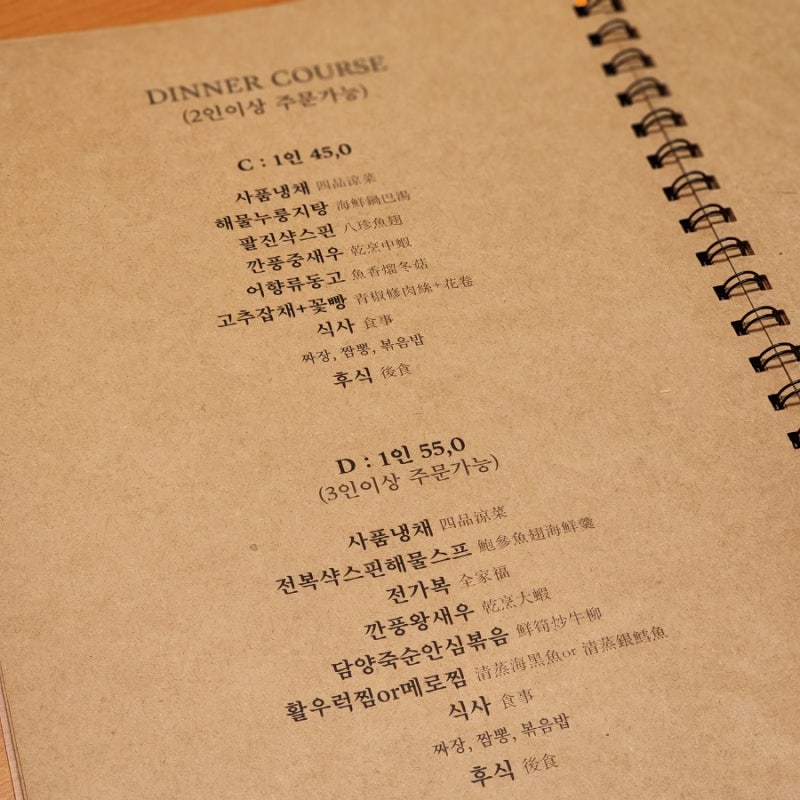 DINNER COURSE
(2인이상 주문가능)
C : 1인 45,0
사품냉채 四品涼菜
해물누룽지탕 海鮮鍋巴湯
팔진샥스핀 八珍魚翅
깐풍중새우 乾烹中蝦
어향류동고 魚香熘冬菇
고추잡채+꽃빵 青椒修肉絲+花卷
식사 食事
짜장, 짬뽕, 볶음밥
후식 後食
D : 1인 55,0
(3인이상 주문가능)
사품냉채 四品涼菜
전복샥스핀해물스프 鮑參魚翅海鮮羹
전가복 全家福
깐풍왕새우 乾烹大蝦
담양죽순안심볶음 鮮筍炒牛柳
활우럭찜or메로찜 清蒸海黑魚or 清蒸銀鱈魚
식사 食事
짜장, 짬뽕, 볶음밥
후식 後食